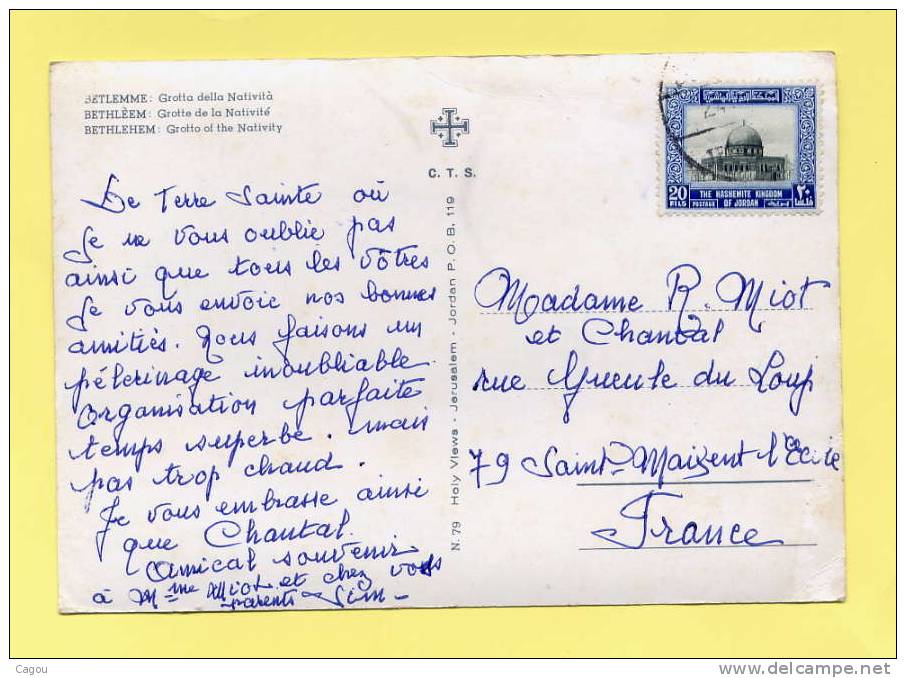 BETLEMME: Grotta della Natività
BETHLÈEM: Grotte de la Nativité
BETHLEHEM: Grotto of the Nativity
C. T. S.
De Terre Sainte où
je ne vous oublie pas
ainsi que tous les vôtres
je vous envoie nos bonnes
amitiés. Nous faisons un
pélerinage inoubliable.
Organisation parfaite
temps superbe. mais
pas trop chaud.
Je vous embrasse ainsi
que Chantal.
Amical souvenir
à Mme Miot et chez vous
parents
N. 79 Holy Views - Jerusalem - Jordan P.O.B. 119
المملكة الاردنية الهاشمية
20
FILS
THE HASHEMITE KINGDOM
POSTAGE OF JORDAN
٢٠
Madame R. Miot
et Chantal
rue Gueule du Loup
79 Saint-Maixent l'Ecole
France
Cagou
www.delcampe.net